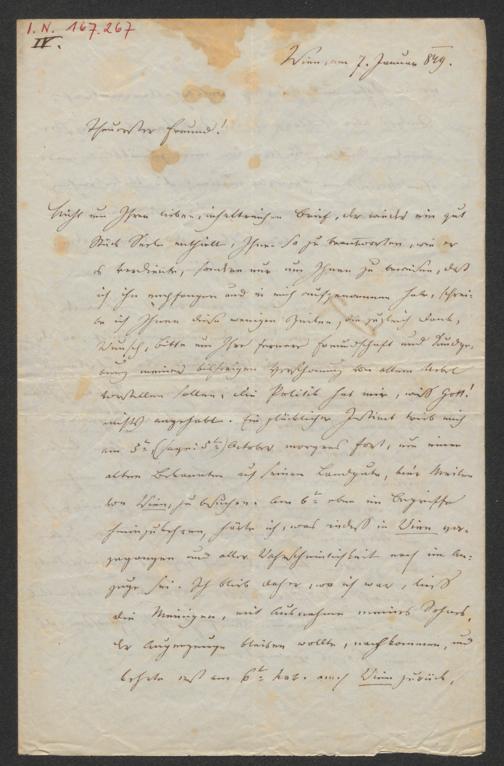 I. N. 167.267
IV.
Wien, am 7. Januar 849.
Theuerster Freund!
Nicht um Ihren lieben, inhaltreichen Brief, der wieder ein gut
Stück Seele enthielt, Ihnen so zu beantworten, wie er
es verdiente, sondern nur um Ihnen zu beweisen, daß
ich ihn empfangen und in mich aufgenommen habe, schrei-
be ich Ihnen diese wenigen Zeilen, die zugleich Dank,
Wunsch, Bitte um Ihre fernere Freundschaft und Kundge-
bung meiner bisherigen Verschonung von allem Uebel
vorstellen sollen. Die Politik hat mir, weiß Gott!
nichts angehabt. Ein glücklicher Instinct trieb mich
am 5t (sage: 5t) October morgens fort, um einen
alten Bekannten auf seinem Landgute, Meilen
von Wien, zu besuchen. Am 6t eben im Begriffe
heimzukehren, hörte ich, was indeß in Wien vor-
gegangen und aller Wahrscheinlichkeit nach im An-
zuge sei. Ich blieb daher, wo ich war, ließ
die Meinigen, mit Ausnahme meines Sohnes,
der Augenzeuge bleiben wollte, nachkommen, und
kehrte erst am 6t nach Wien zurück,